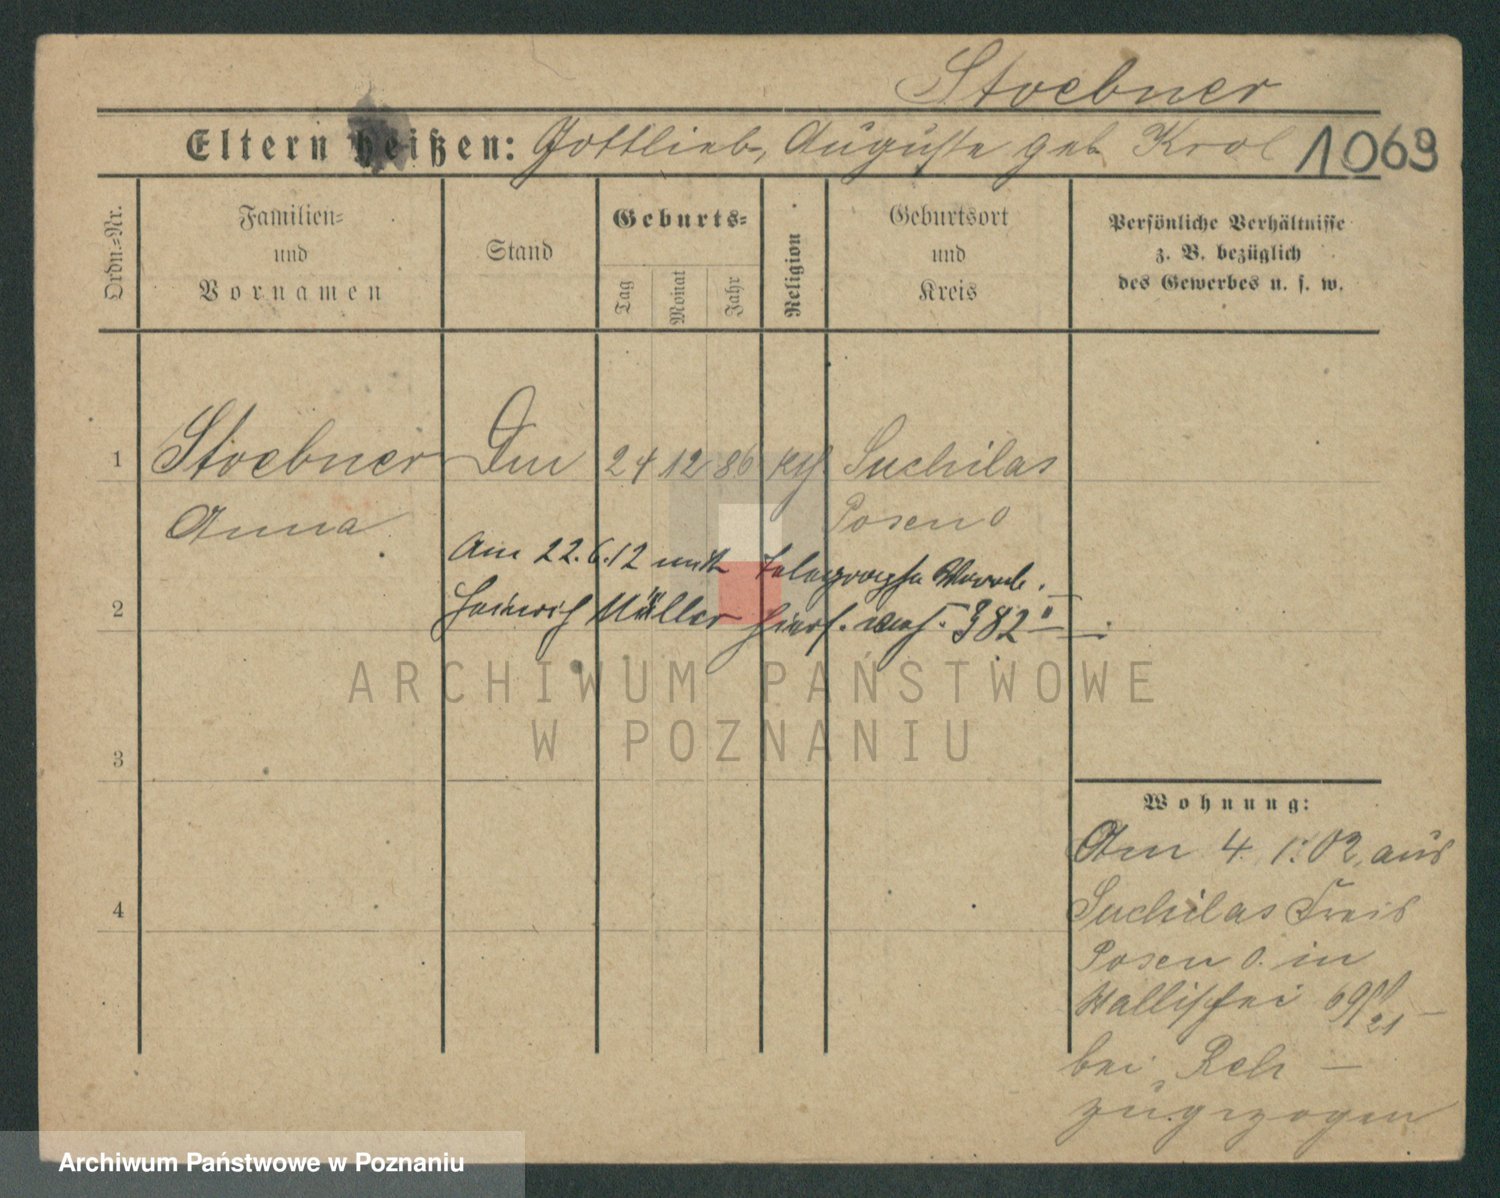 Stoebner
Eltern heißen: Gottlieb, Auguste geb Krol 1069
Ordn.-Nr.
Familien-
und
Vornamen
Stand
Geburts-
Tag
Monat
Jahr
Religion
Geburtsort
und
Kreis
Persönliche Verhältnisse
z. B. bezüglich
des Gewerbes u. s. w.
1 Stoebner 24 12 86 Suchilas
Anna Posen O
Am 22.6.12 mit
2 Heinrich Müller 382
3
4
Wohnung:
Am 4. 1. 02, aus
Suchilas Kreis
Posen O. in
Wallischei 69/71
21
bei Reh –
zugezogen
ARCHIWUM PAŃSTWOWE
W POZNANIU
Archiwum Państwowe w Poznaniu